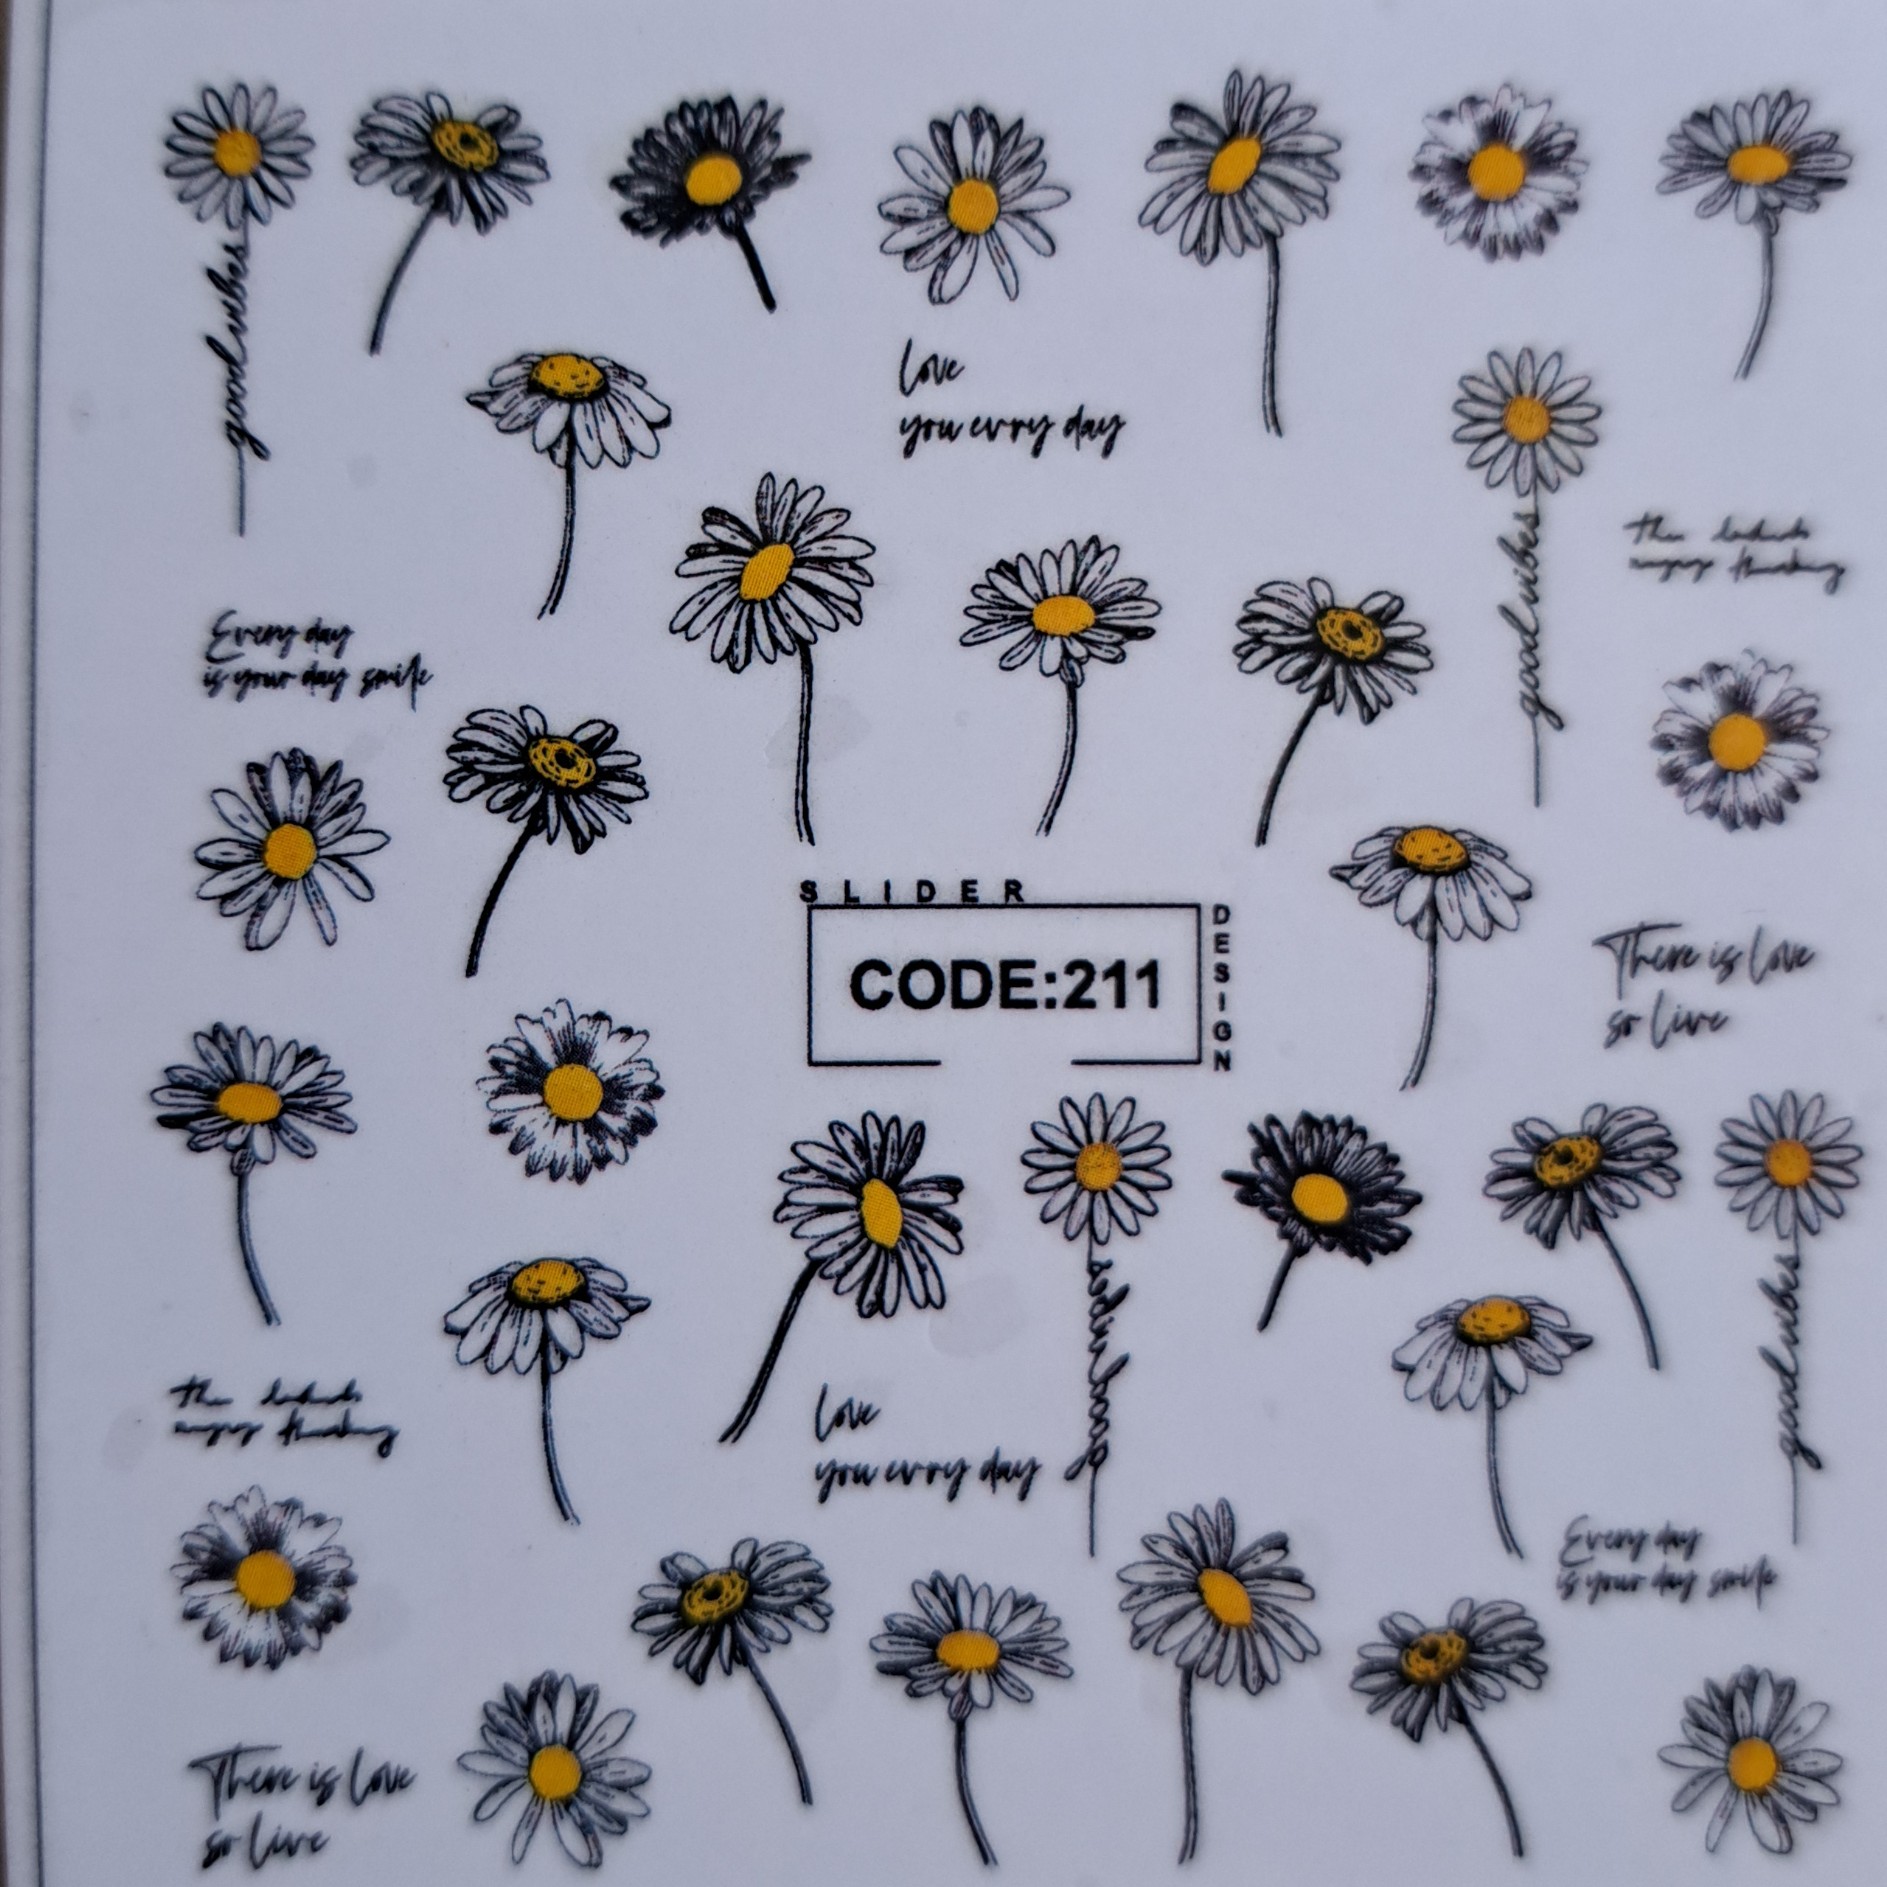 goodvibes
Love
you evry day
goodvibes
the
thinking
Every day
is your day smile
SLIDER
DESIGN
CODE:211
There is love
so live
goodvibes
goodvibes
the
thinking
Love
you evry day
Every day
is your day smile
There is love
so live